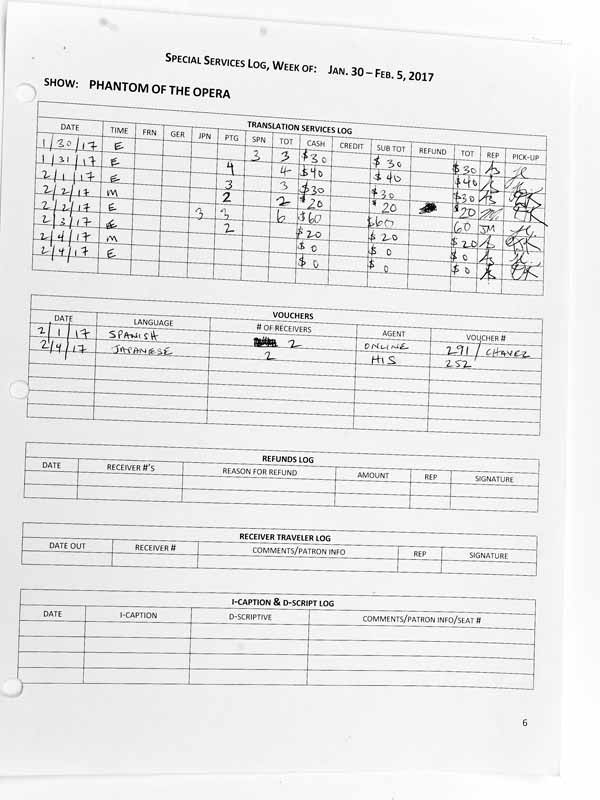 SPECIAL SERVICES LOG, WEEK OF: JAN. 30 – FEB. 5, 2017
SHOW: PHANTOM OF THE OPERA
TRANSLATION SERVICES LOG
DATE TIME FRN GER JPN PTG SPN TOT CASH CREDIT SUB TOT REFUND TOT REP PICK-UP
1/30/17 E 3 3 $30 $30 $30
1/31/17 E 4 4 $40 $40 $40
2/1/17 E 3 3 $30 $30 $30
2/2/17 M 2 2 $20 $20 $20
2/2/17 E 3 3 6 $60 $60 60 JM
2/3/17 E 2 $20 $20 $20
2/4/17 M $0 $0 $0
2/4/17 E $0 $0 $0
VOUCHERS
DATE LANGUAGE # OF RECEIVERS AGENT VOUCHER #
2/1/17 SPANISH 2 ONLINE 291/CHAVEZ
2/4/17 JAPANESE 2 HIS 252
REFUNDS LOG
DATE RECEIVER #'S REASON FOR REFUND AMOUNT REP SIGNATURE
RECEIVER TRAVELER LOG
DATE OUT RECEIVER # COMMENTS/PATRON INFO REP SIGNATURE
I-CAPTION & D-SCRIPT LOG
DATE I-CAPTION D-SCRIPTIVE COMMENTS/PATRON INFO/SEAT #
6